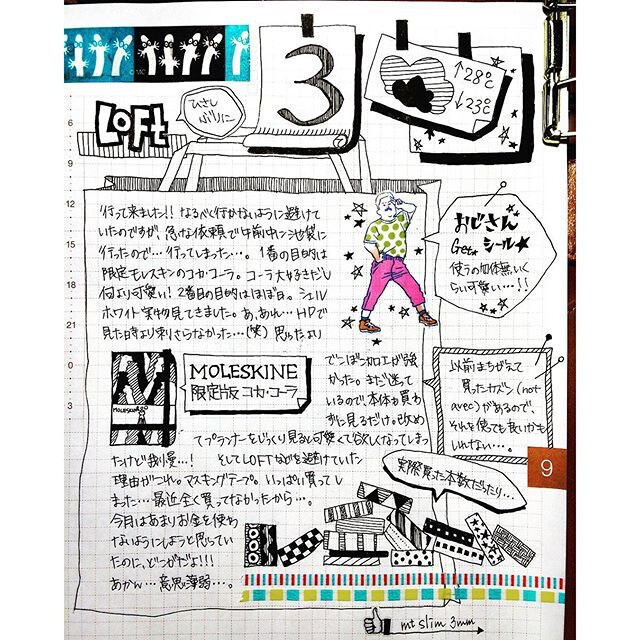 3
↑28℃
↓23℃
LOFT
ひさし
ぶりに
6
9
12
15
18
21
0
3
行って来ました!! なるべく行かないように避けて
いたのですが、急な依頼で午前中フツーに池袋に
行ったので…行ってしまった…。1番の目的は
限定モレスキンのコカ・コーラ。コーラ大好きだし
何より可愛い! 2番目の目的はほぼ日。シェル
ホワイト実物見てきました。あ、あれ…HPで
見た時より刺さらなかった…(笑) 思ったより
でこぼこ加工が強
かった。まだ迷って
いるので、本体も買わ
ずに見るだけ。改め
てプランナーをじっくり見ると可愛くて欲しくなってしまっ
たけど我慢…! そしてLOFTなどを避けていた
理由がこれ。マスキングテープ。いっぱい買ってし
まった…最近全く買ってなかったから…。
今月はあまりお金を使わ
ないようにしようと思ってい
たのに、どこがだよ!!!
あかん…意思薄弱…。
MOLESKINE
限定版 コカ・コーラ
MOLESKINE
おじさん
Get★シール★
使うの勿体無いく
らい可愛い…!!
以前まちがえて
買ったカズン(not
avec)があるので、
それを使ても良いかも
しれない…。
9
実際買った本数だったり…
mt slim 3mm